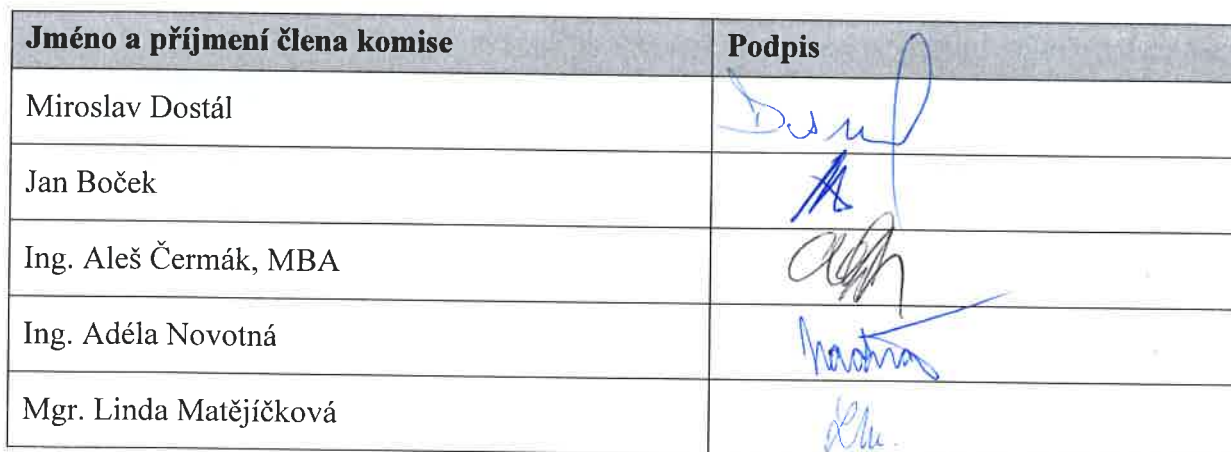 Jméno a příjmení člena komise Podpis
Miroslav Dostál
Jan Boček
Ing. Aleš Čermák, MBA
Ing. Adéla Novotná
Mgr. Linda Matějíčková